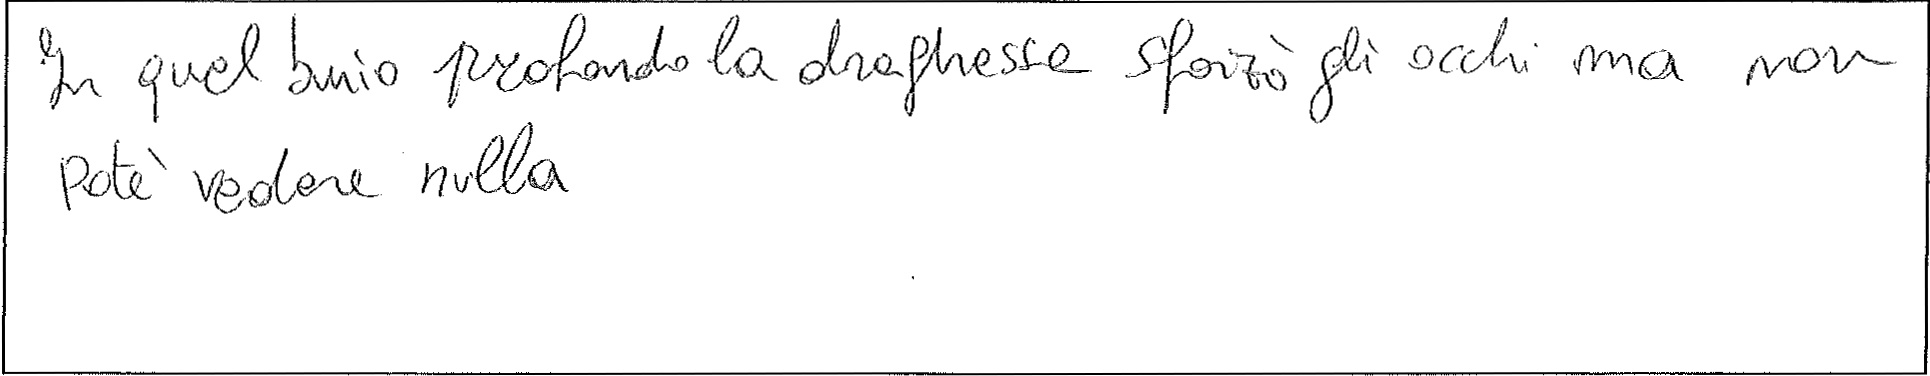 In quel buio profondo la draghessa sforzò gli occhi ma non
potè vedere nulla